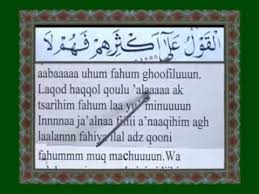 الْقَوْلُ عَلَىٰ أَكْثَرِهِمْ فَهُمْ لَا
aabaaaaa uhum fahum ghoofiluuun.
Laqod haqqol qoulu 'alaaaaa ak
tsarihim fahum laa yu' minuuuun
Innnnaa ja'alnaa fiiii a'naaqihim agh
laalannn fahiya ilal adz qooni
fahummm muq machuuuun.Wa